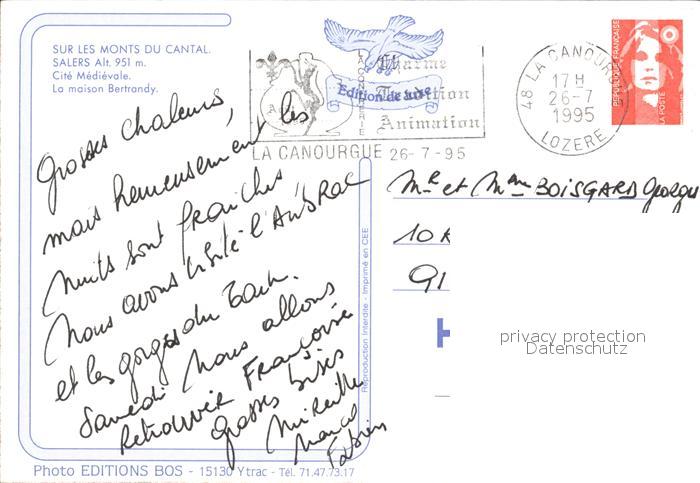 SUR LES MONTS DU CANTAL.
SALERS Alt. 951 m.
Cité Médiévale.
La maison Bertrandy.
Grosses chaleurs,
mais heureusement les
nuits sont fraîches,
Nous avons visité l'AUBRAC
et les gorges du Tarn.
Samedi nous allons
Retrouver Françoise
grosses bises
Mireille
Marcel
Fabien
Photo EDITIONS BOS - 15130 Ytrac - Tél. 71.47.73.17
Reproduction Interdite - Imprimé en CEE
Edition de luxe
Charme
Tradition
Animation
LA CANOURGUE 26-7-95
48 LA CANOURGUE
17 H
26-7
1995
LOZERE
REPUBLIQUE FRANÇAISE
LA POSTE
Mr et Mme BOISGARD Georges
10 R
91
privacy protection
Datenschutz